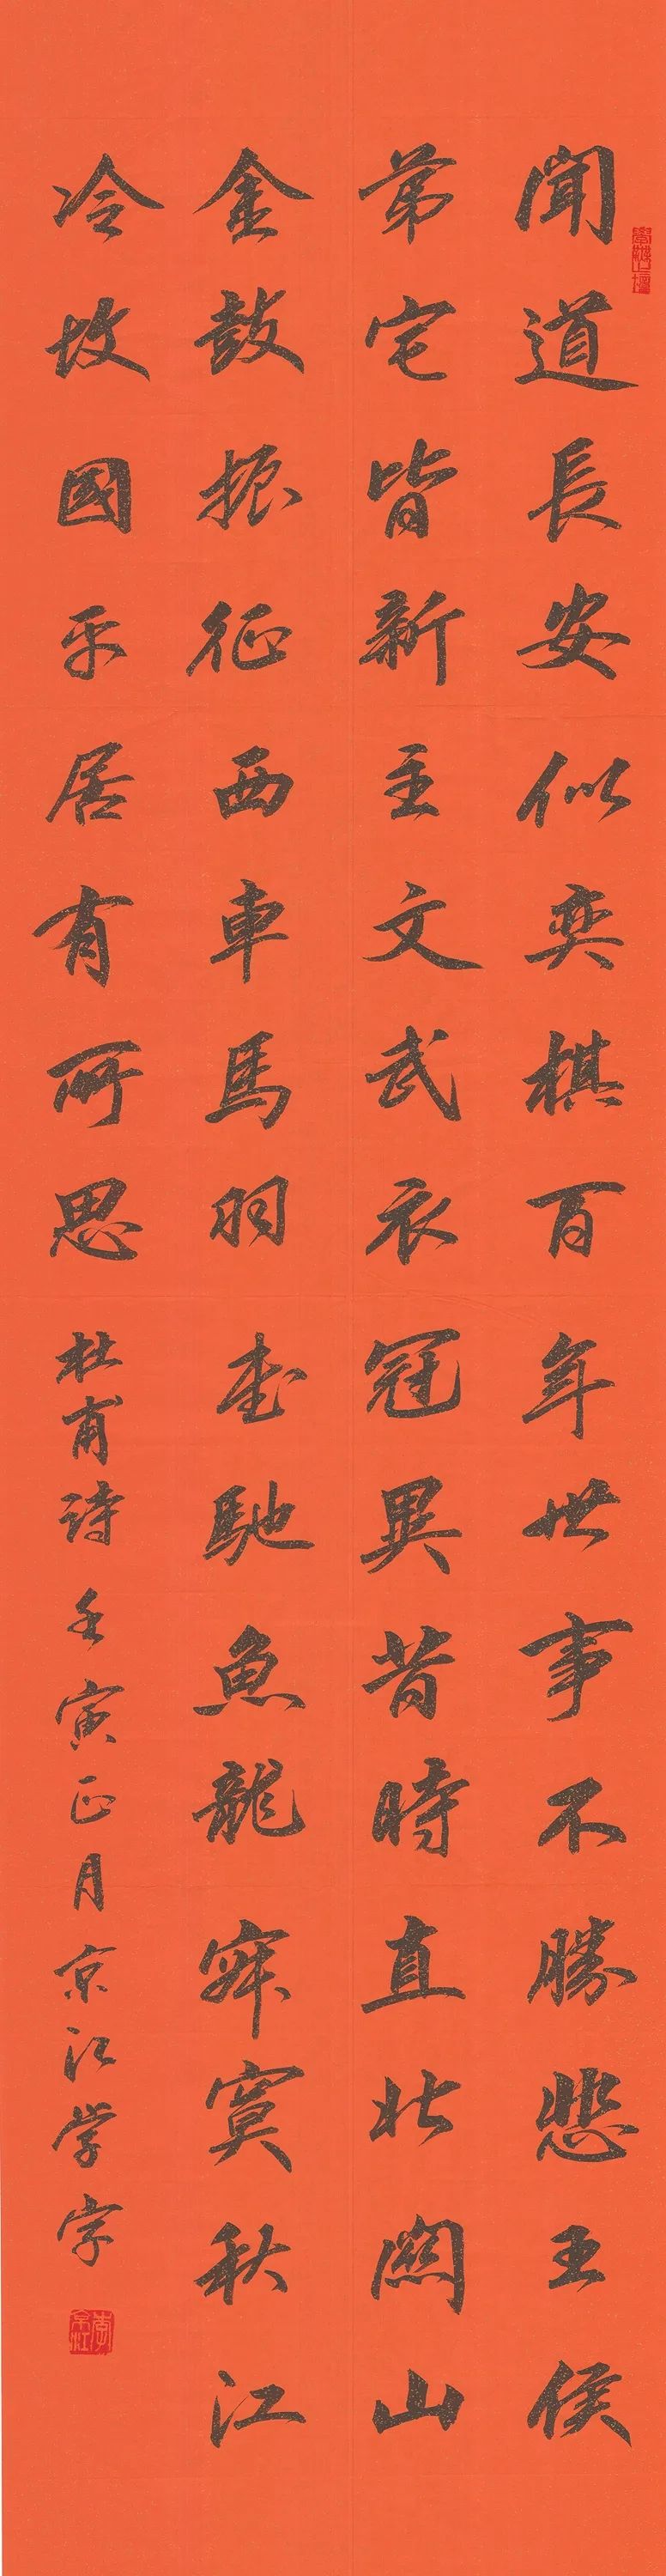 聞道長安似奕棋百年世事不勝悲王侯
第宅皆新主文武衣冠異昔時直北關山
金鼓振征西車馬羽書馳魚龍寂寞秋江
冷故國平居有所思 杜甫詩 壬寅正月京江学字